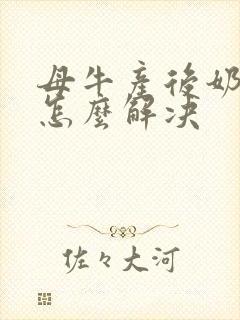 母牛産後奶
怎麼解决
佐々大河